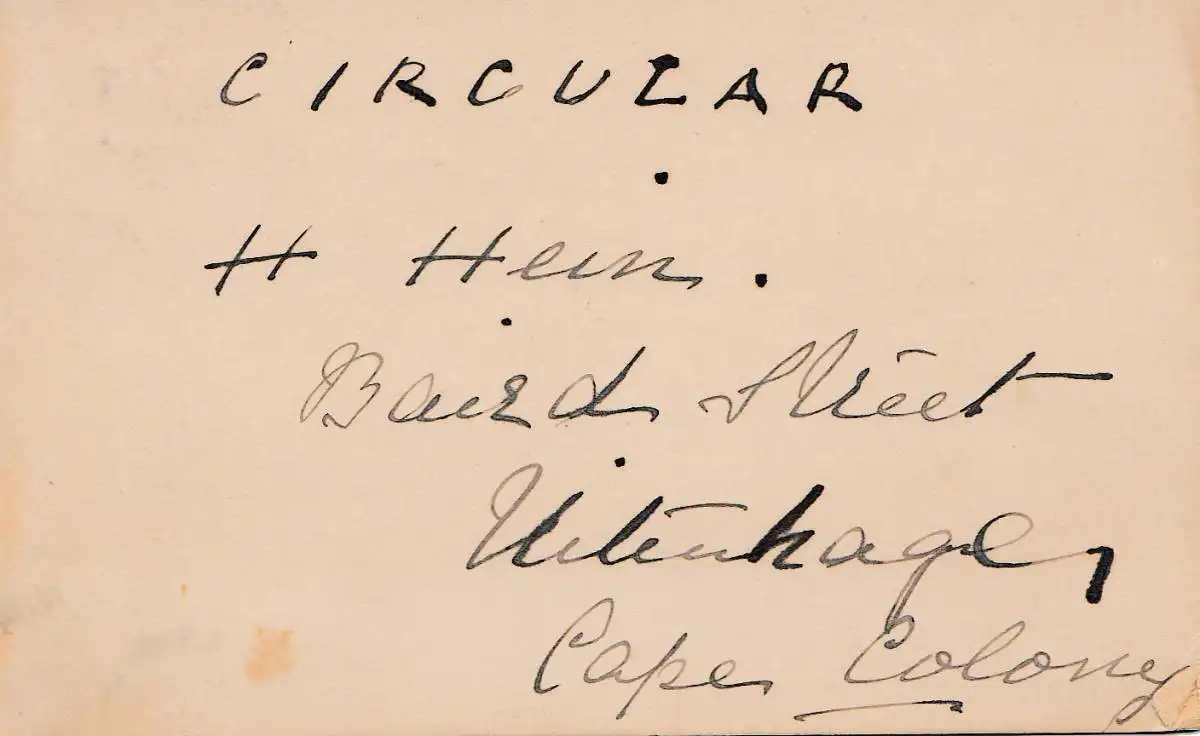 CIRCULAR
H Hein.
Baird Street
Uitenhage,
Cape Colony